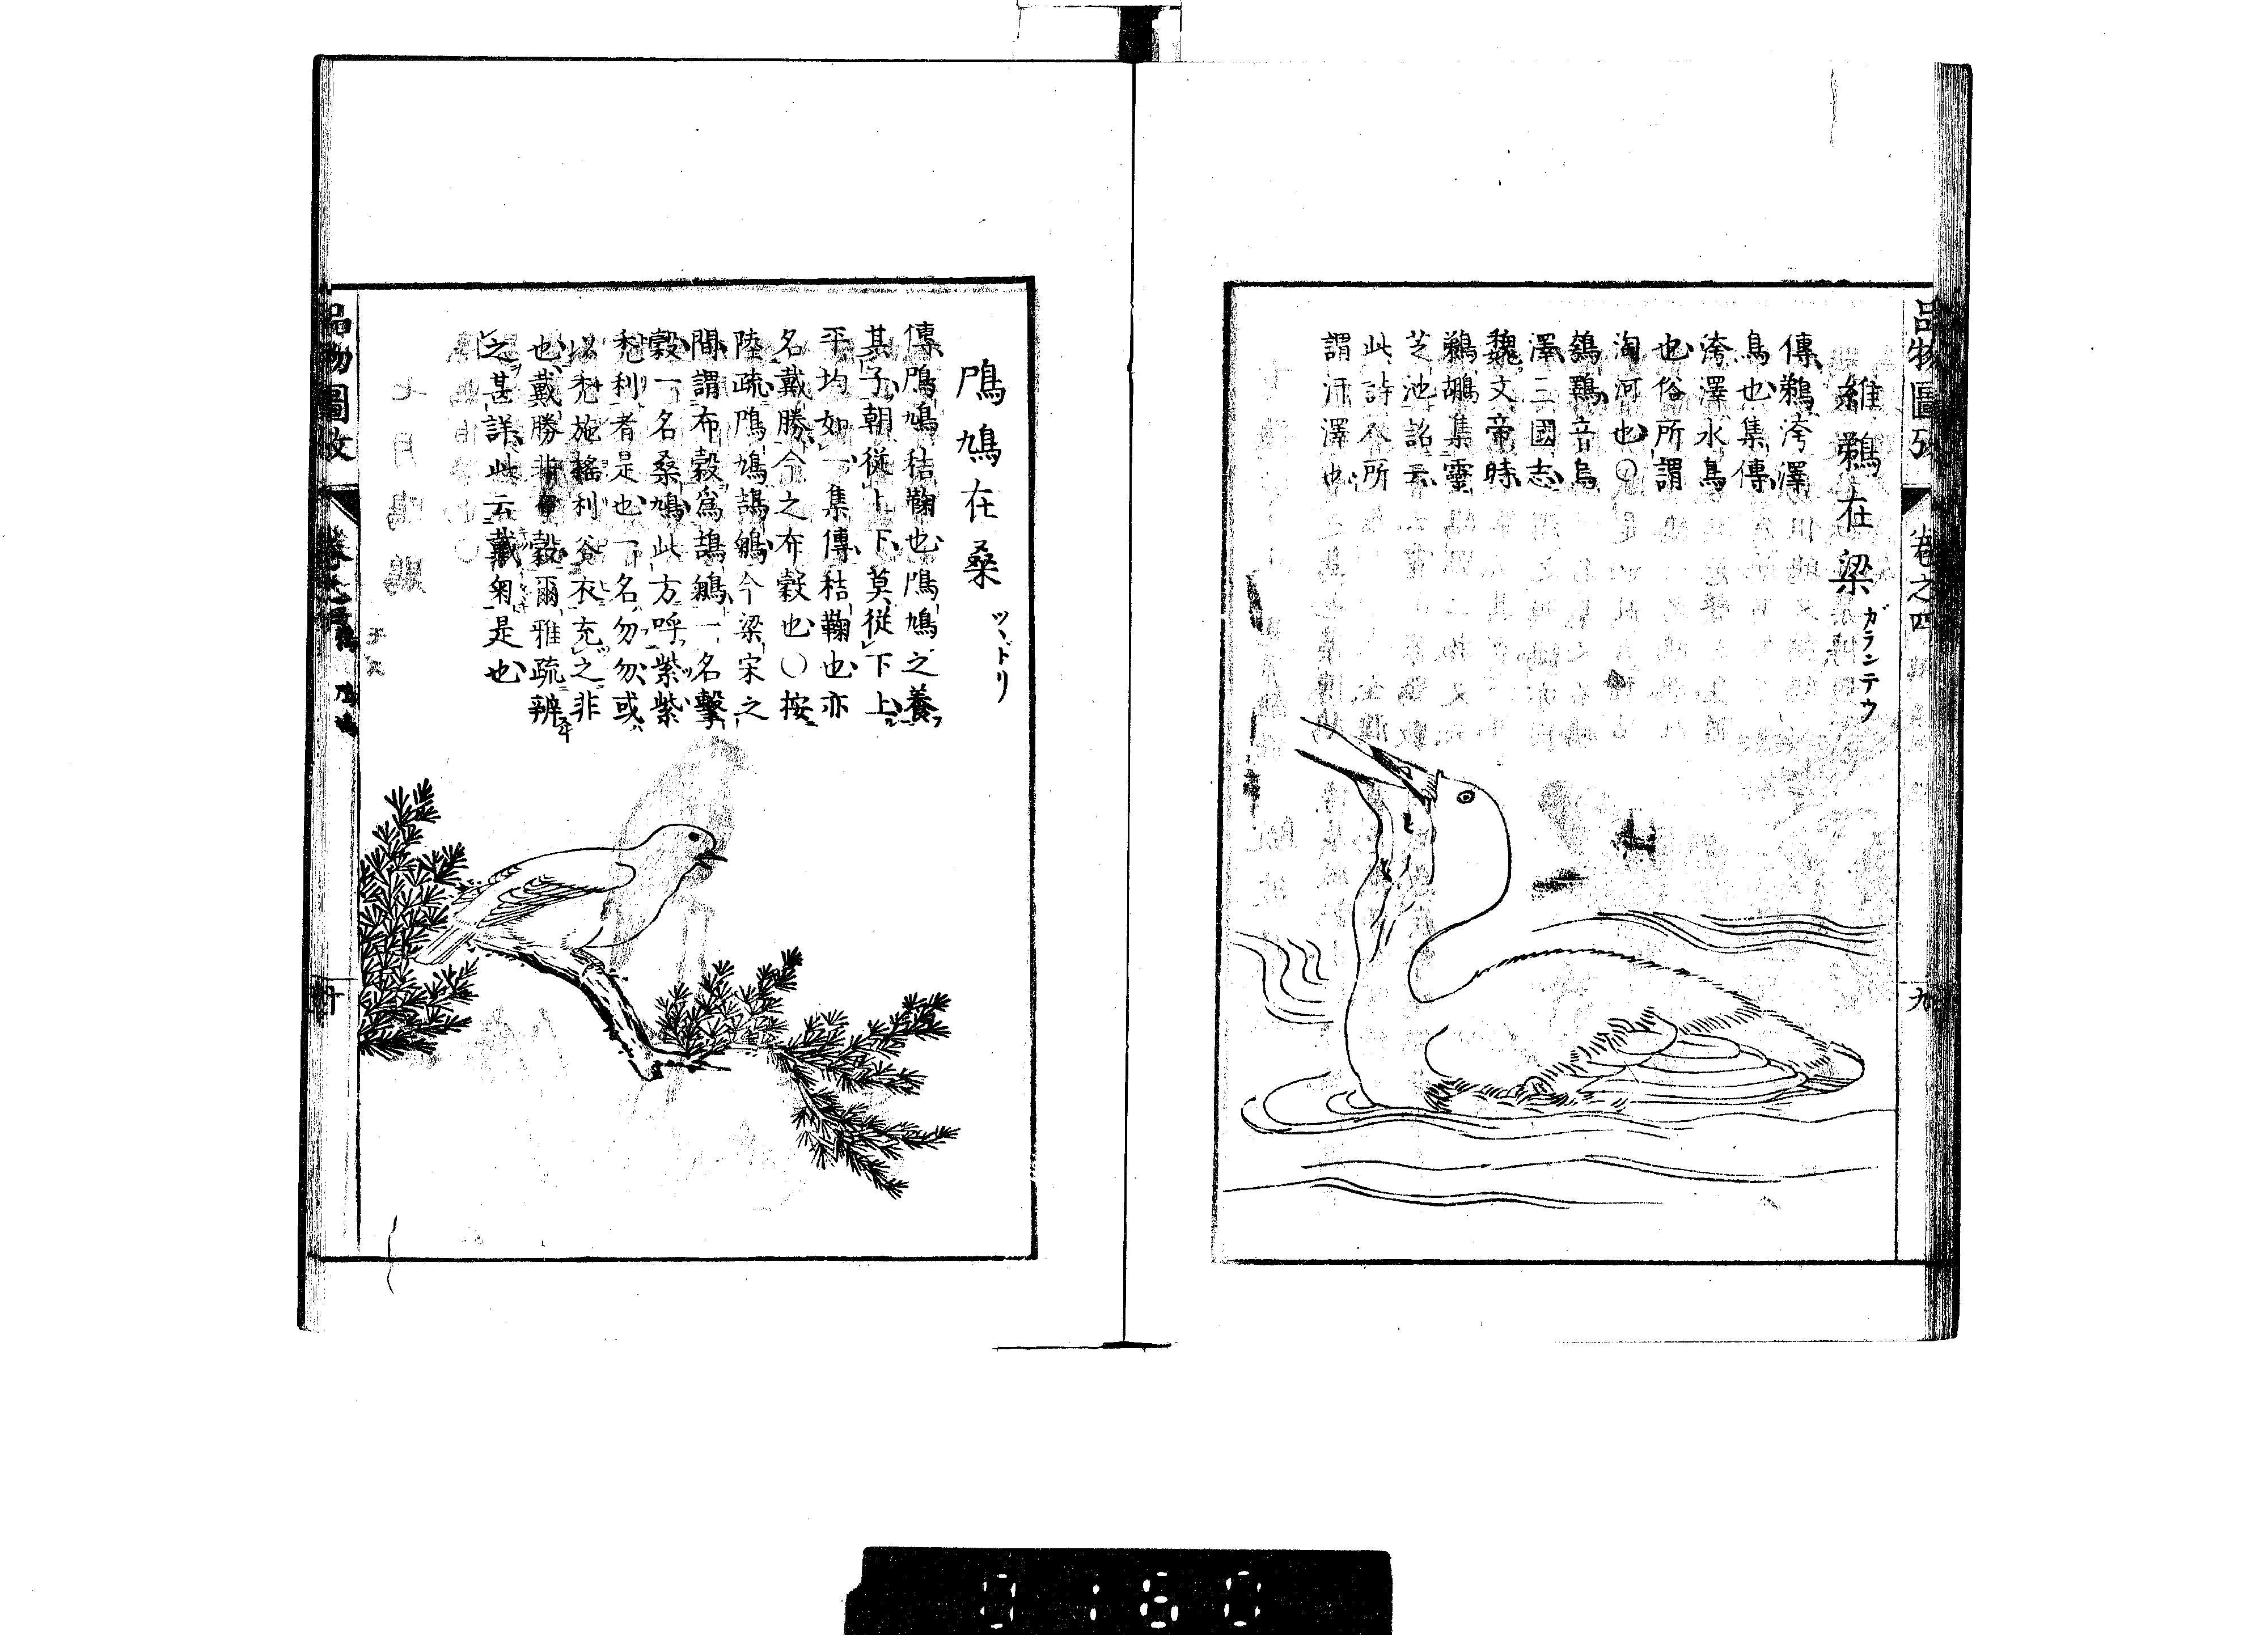 品物圖攷
卷之四
九
維鵜在梁
ガランテウ
傳鵜洿澤
鳥也集傳
洿澤水鳥
也俗所謂
淘河也○
鵜音烏
澤三國志
魏文帝時
鵜鶘集靈
芝池詔云
此詩人所
謂汙澤也
鳲鳩在桑
ツヽドリ
傳鳲鳩秸鞠也鳲鳩之養
其子朝從上下莫從下上
平均如一集傳秸鞠也亦
名戴勝今之布穀也○按
陸疏鳲鳩鴶鵴今梁宋之
間謂布穀爲鴶鵴一名擊
穀一名桑鳩此方呼紫紫
禿利者是也一名勿勿或
以禿施搖利衣充之非
也戴勝非布穀爾雅疏辨
之甚詳此云戴菊是也
品物圖攷
0180